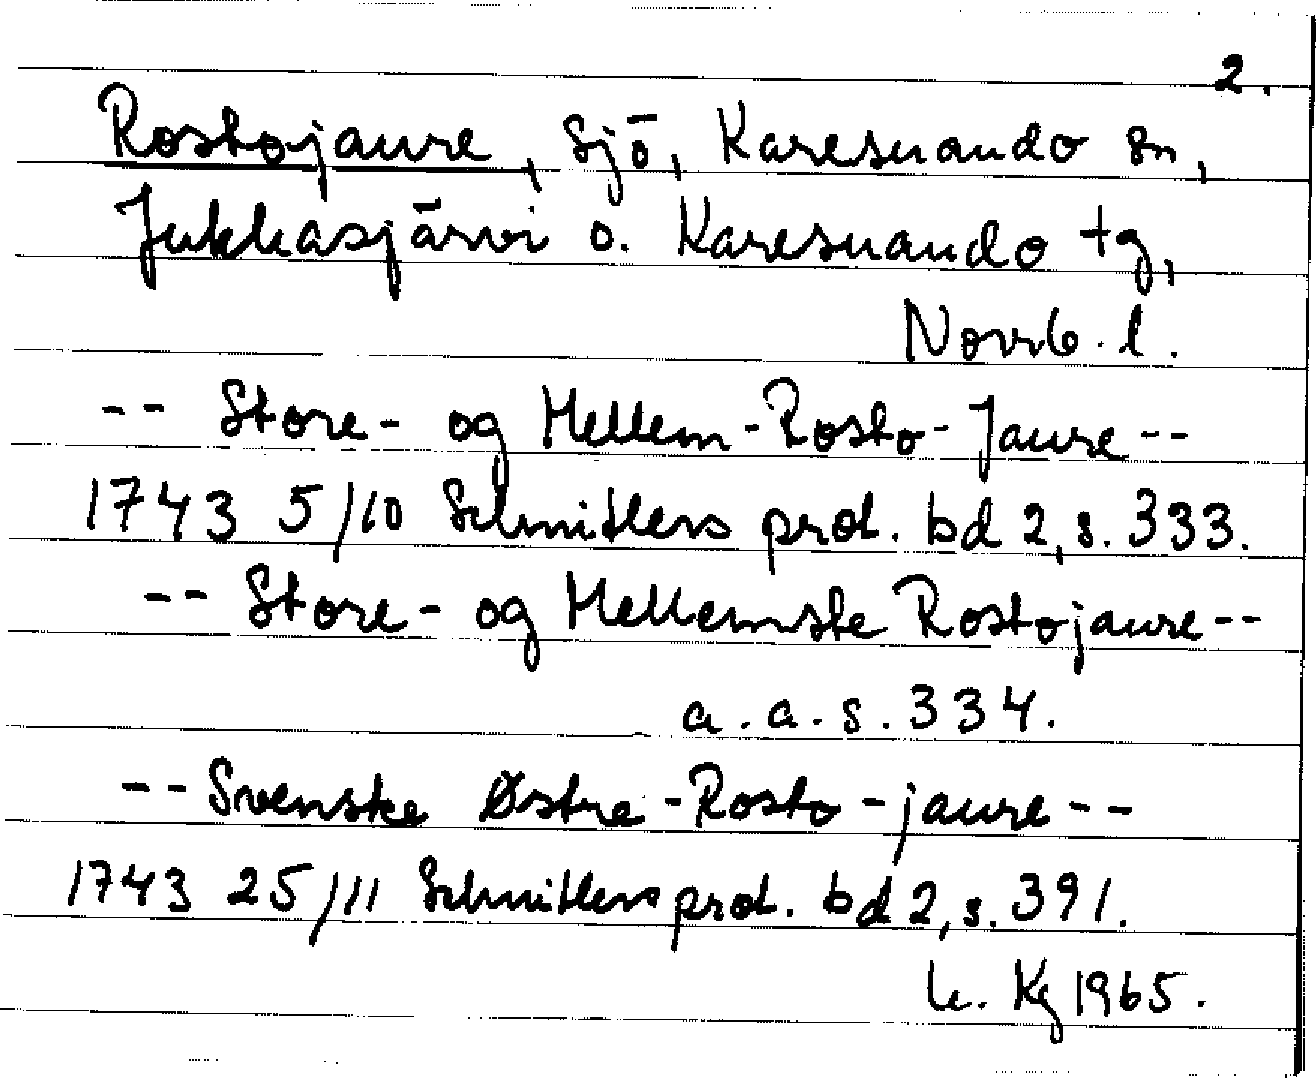 2.
Rostojaure, sjö, Karesuando sn,
Jukkasjärvi o. Karesuando tg,
Norrb. l.
-- Store- og Mellem-Rosto-Jaure--
1743 5/10 Schnitlers prot. bd 2, s. 333.
-- Store- og Mellemste Rostojaure--
a.a.s. 334.
--Svenske Østre-Rosto-jaure--
1743 25/11 Schnitlers prot. bd 2, s. 391.
Kg 1965.